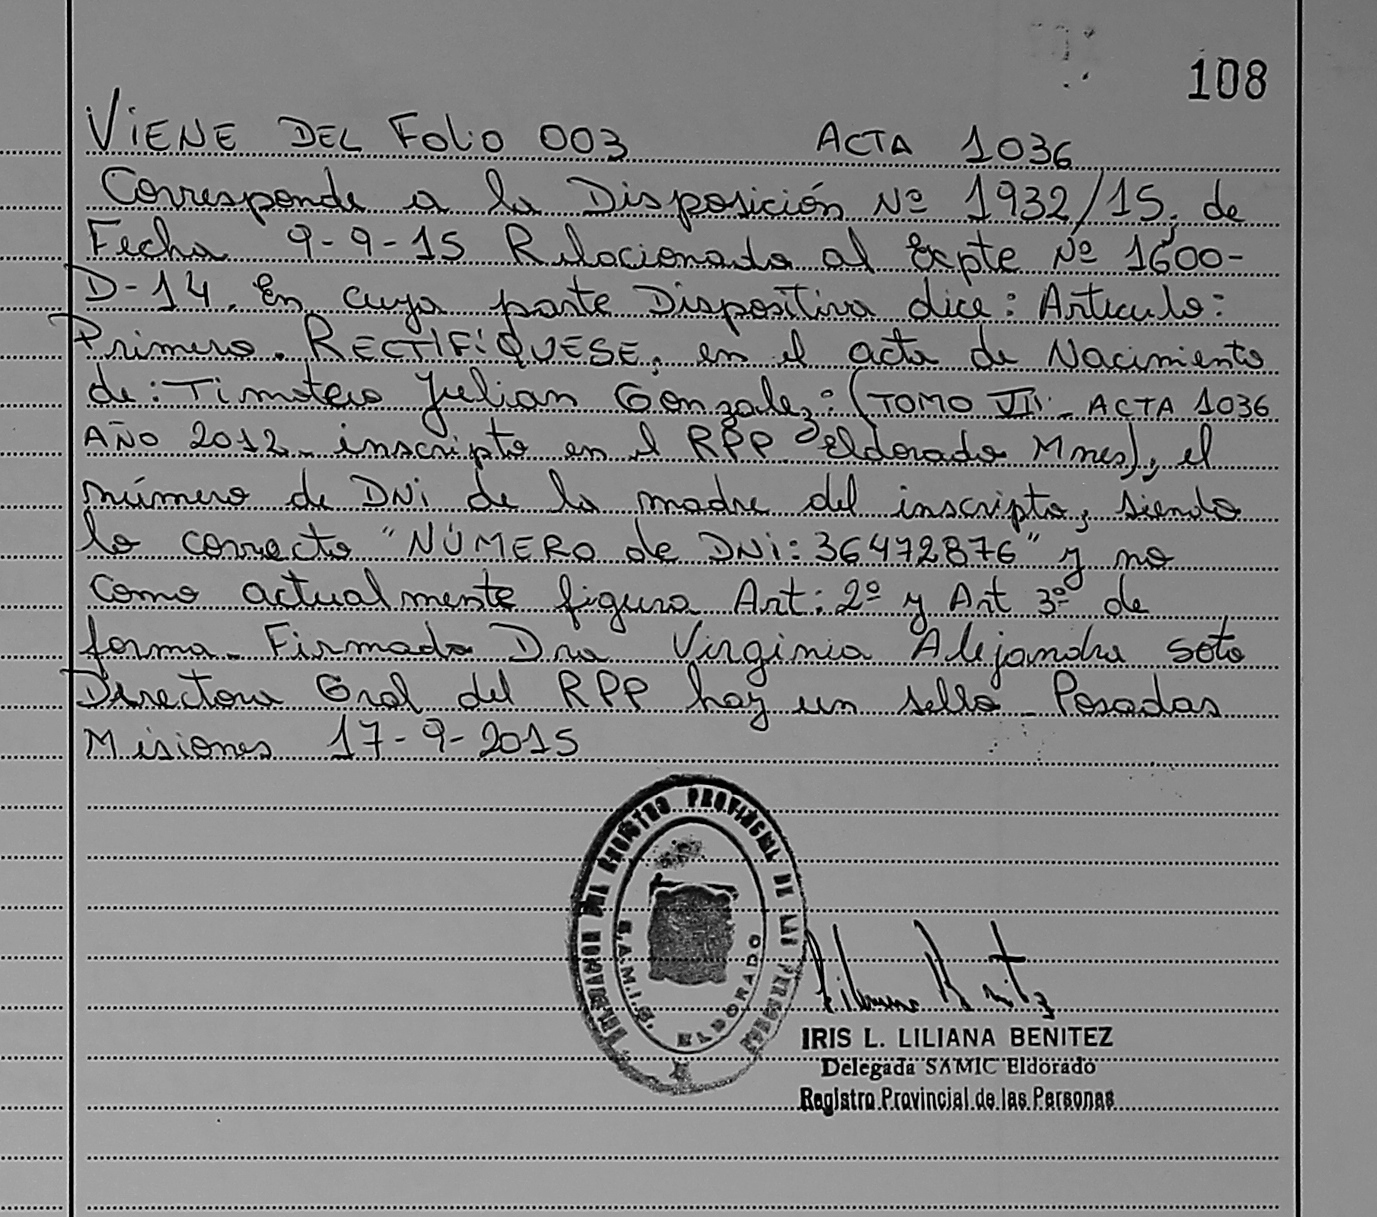 108
VIENE DEL FOLIO 003 ACTA 1036
Corresponde a la Disposición Nº 1932/15, de
Fecha 9-9-15 Relacionada al Expte Nº 1600-
D-14. En cuya parte Dispositiva dice: Articulo:
Primero. RECTIFÍQUESE, en el acta de Nacimiento
de: Timoteo Julian Gonzalez: (TOMO VII - ACTA 1036
AÑO 2012 - inscripto en el RPP Eldorado Mnes), el
número de DNi de la madre del inscripto, siendo
lo correcto "NÚMERO de DNi: 36472876" y no
como actualmente figura Art: 2º y Art 3º de
forma - Firmado Dra Virginia Alejandra Soto
Directora Gral del RPP hay un sello - Posadas
Misiones 17-9-2015
REGISTRO PROVINCIAL DE LAS PERSONAS
S.A.M.I.C. ELDORADO
IRIS L. LILIANA BENITEZ
Delegada SAMIC Eldorado
Registro Provincial de las Personas